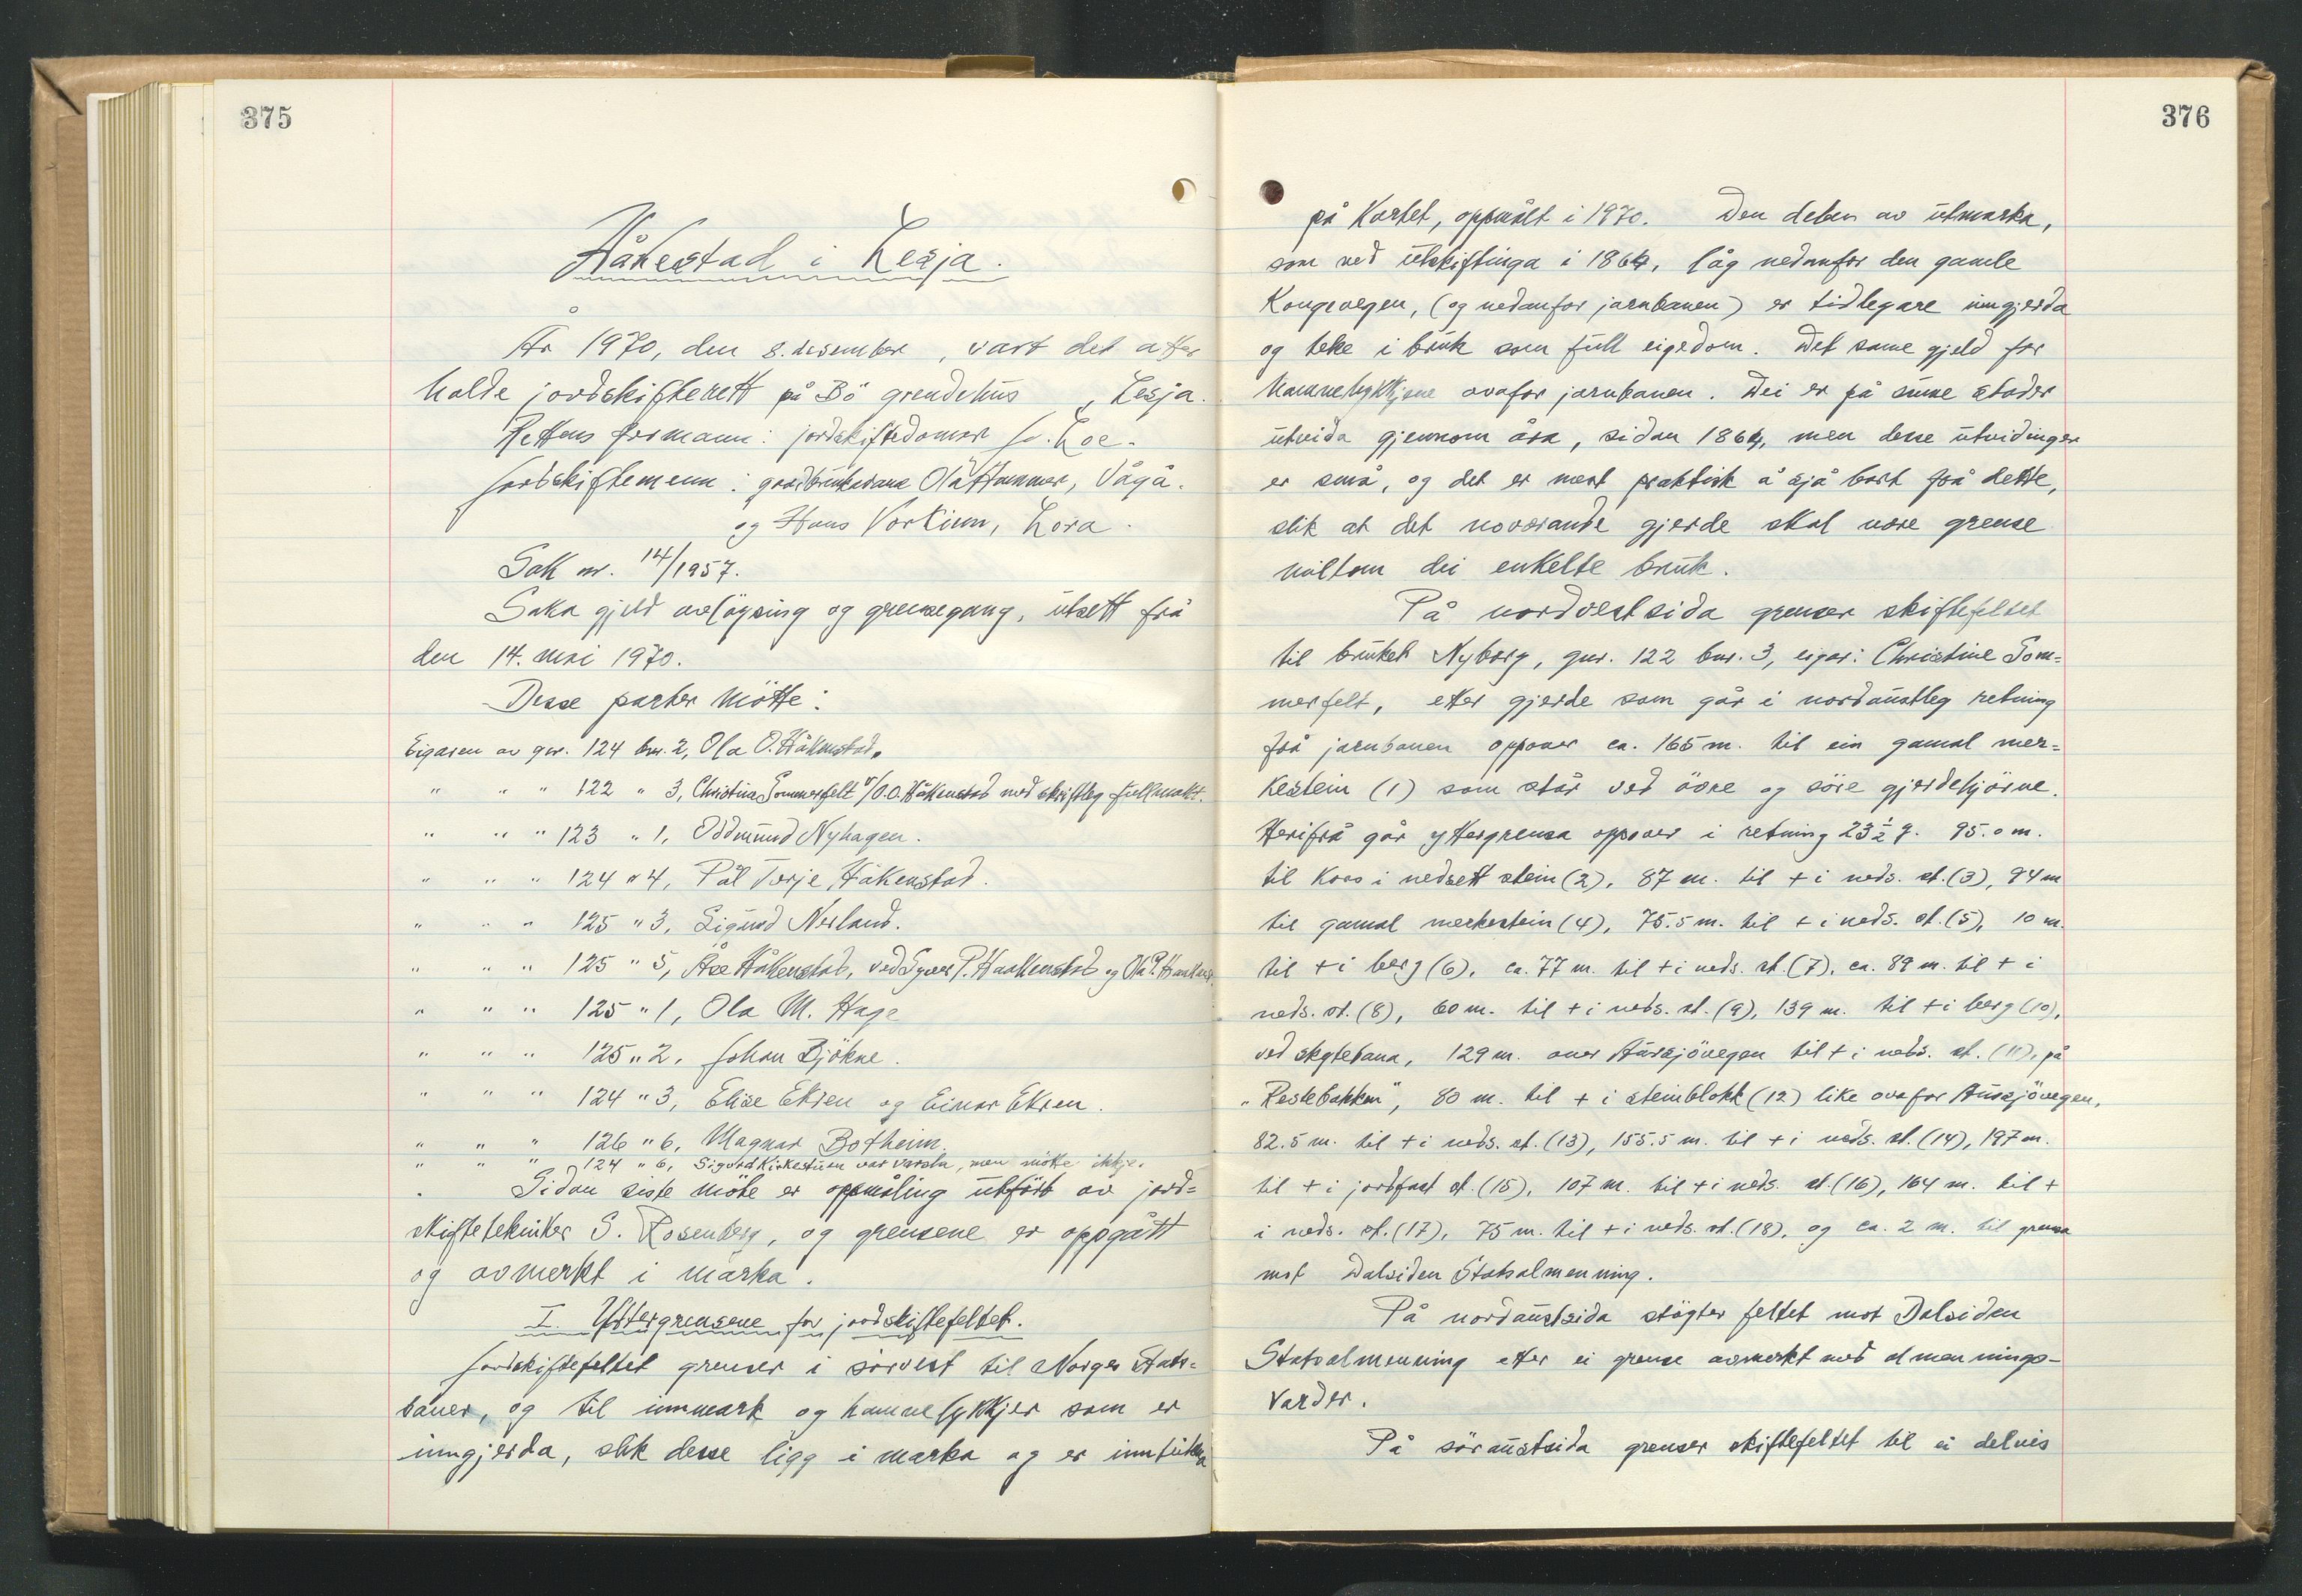 375
Håkestad i Lesja.
År 1970, den 8. desember, vart det atter
halde jordskifterett på Bö grendehus, Lesja.
Rettens formann: jordskiftedomar J. Loe.
Jordskiftemenn: gardbrukarane Ola Hammer, Vågå.
og Hans Vorkinn, Lora.
Sak nr. 14/1957.
Saka gjeld avlöysing og grensegang, utsett frå
den 14. mai 1970.
Desse parter mötte:
Eigaren av gnr. 124 bnr. 2, Ola O. Håkenstad.
" " " 122 " 3, Christine Sommerfelt v/O.O. Håkenstad med skriftleg fullmakt.
" " " 123 " 1, Oddmund Nyhagen.
" " " 124 " 4, Pål Terje Håkenstad.
" " " 125 " 3, Sigurd Nerland.
" " " 125 " 5, Åse Håkenstad, ved Syver P. Haakenstad og Ola P.
" " " 125 " 1, Ola M. Hage
" " " 125 " 2, Johan Bjökne.
" " " 124 " 3, Elise Ekren og Einar Ekren.
" " " 126 " 6, Magnar Botheim.
" " " 124 " 6, Sigurd Kirkestuen var varsla, men mötte ikkje.
Sidan siste möte er oppmåling utfört av jord=
skiftetekniker S. Rosenberg, og grensene er oppgått
og avmerkt i marka.
I. Yttergrensene for jordskiftefeltet.
Jordskiftefeltet grenser i sörvest til Norges Stats=
baner, og til innmark og hamnelykkjer som er
inngjerda, slik desse ligg i marka og er innteikna
376
på kartet, oppmålt i 1970. Den delen av utmarka,
som ved utskiftinga i 1864, låg nedanfor den gamle
Kongevegen, (og nedanfor jarnbanen) er tidlegare inngjerda
og teke i bruk som full eigedom. Det same gjeld for
hamnelykkjene ovafor jarnbanen. Dei er på sume stader
utvida gjennom åra, sidan 1864, men desse utvidinger
er små, og det er mest praktisk å sjå bort frå dette,
slik at det noverande gjerde skal vere grense
millom dei enkelte bruk.
På nordvestsida grenser skiftefeltet
til bruket Nyborg, gnr. 122 bnr. 3, eigar: Christine Som=
merfelt, etter gjerde som går i nordaustleg retning
frå jarnbanen oppover ca. 165 m. til ein gamal mer=
kestein (1) som står ved övre og söre gjerdehjörne.
Herifrå går yttergrensa oppover i retning 23 ½ g. 95.0 m.
til kors i nedsett stein (2), 87 m. til + i neds. st. (3), 94 m
til gamal merkestein (4), 75.5 m. til + i neds. st. (5), 10 m.
til + i berg (6), ca. 77 m. til + i neds. st. (7), ca. 89 m. til + i
neds. st. (8), 60 m. til + i neds. st. (9), 139 m. til + i berg (10),
ved skytebana, 129 m. over Aursjövegen til + i neds. st. (11), på
"Restebakken", 80 m. til + i steinblokk (12) like ovafor Aursjövegen,
82.5 m. til + i neds. st. (13), 155.5 m. til + i neds. st. (14), 197 m.
til + i jordfast st. (15), 107 m. til + i neds. st. (16), 164 m. til +
i neds. st. (17), 75 m. til + i neds. st. (18), og ca. 2 m. til grensa
mot Dalsiden Statsalmenning.
På nordaustsida stöyter feltet mot Dalsiden
Statsalmenning etter ei grense avmerkt med almennings-
varder.
På söraustsida grenser skiftefeltet til ei delvis